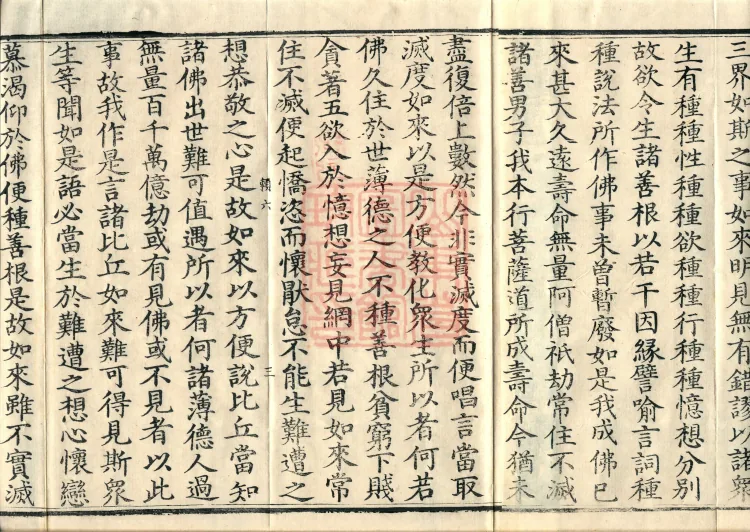 三界如斯之事如來明見無有錯謬以諸衆
生有種種性種種欲種種行種種憶想分別
故欲令生諸善根以若干因緣譬喻言詞種
種說法所作佛事未曾暫廢如是我成佛已
來甚大久遠壽命無量阿僧祇劫常住不滅
諸善男子我本行菩薩道所成壽命今猶未
盡復倍上數然今非實滅度而便唱言當取
滅度如來以是方便教化衆生所以者何若
佛久住於世薄德之人不種善根貧窮下賤
貪著五欲入於憶想妄見網中若見如來常
住不滅便起憍恣而懷猒怠不能生難遭之
賴六 三
想恭敬之心是故如來以方便說比丘當知
諸佛出世難可值遇所以者何諸薄德人過
無量百千萬億劫或有見佛或不見者以此
事故我作是言諸比丘如來難可得見斯衆
生等聞如是語必當生於難遭之想心懷戀
慕渴仰於佛便種善根是故如來雖不實滅